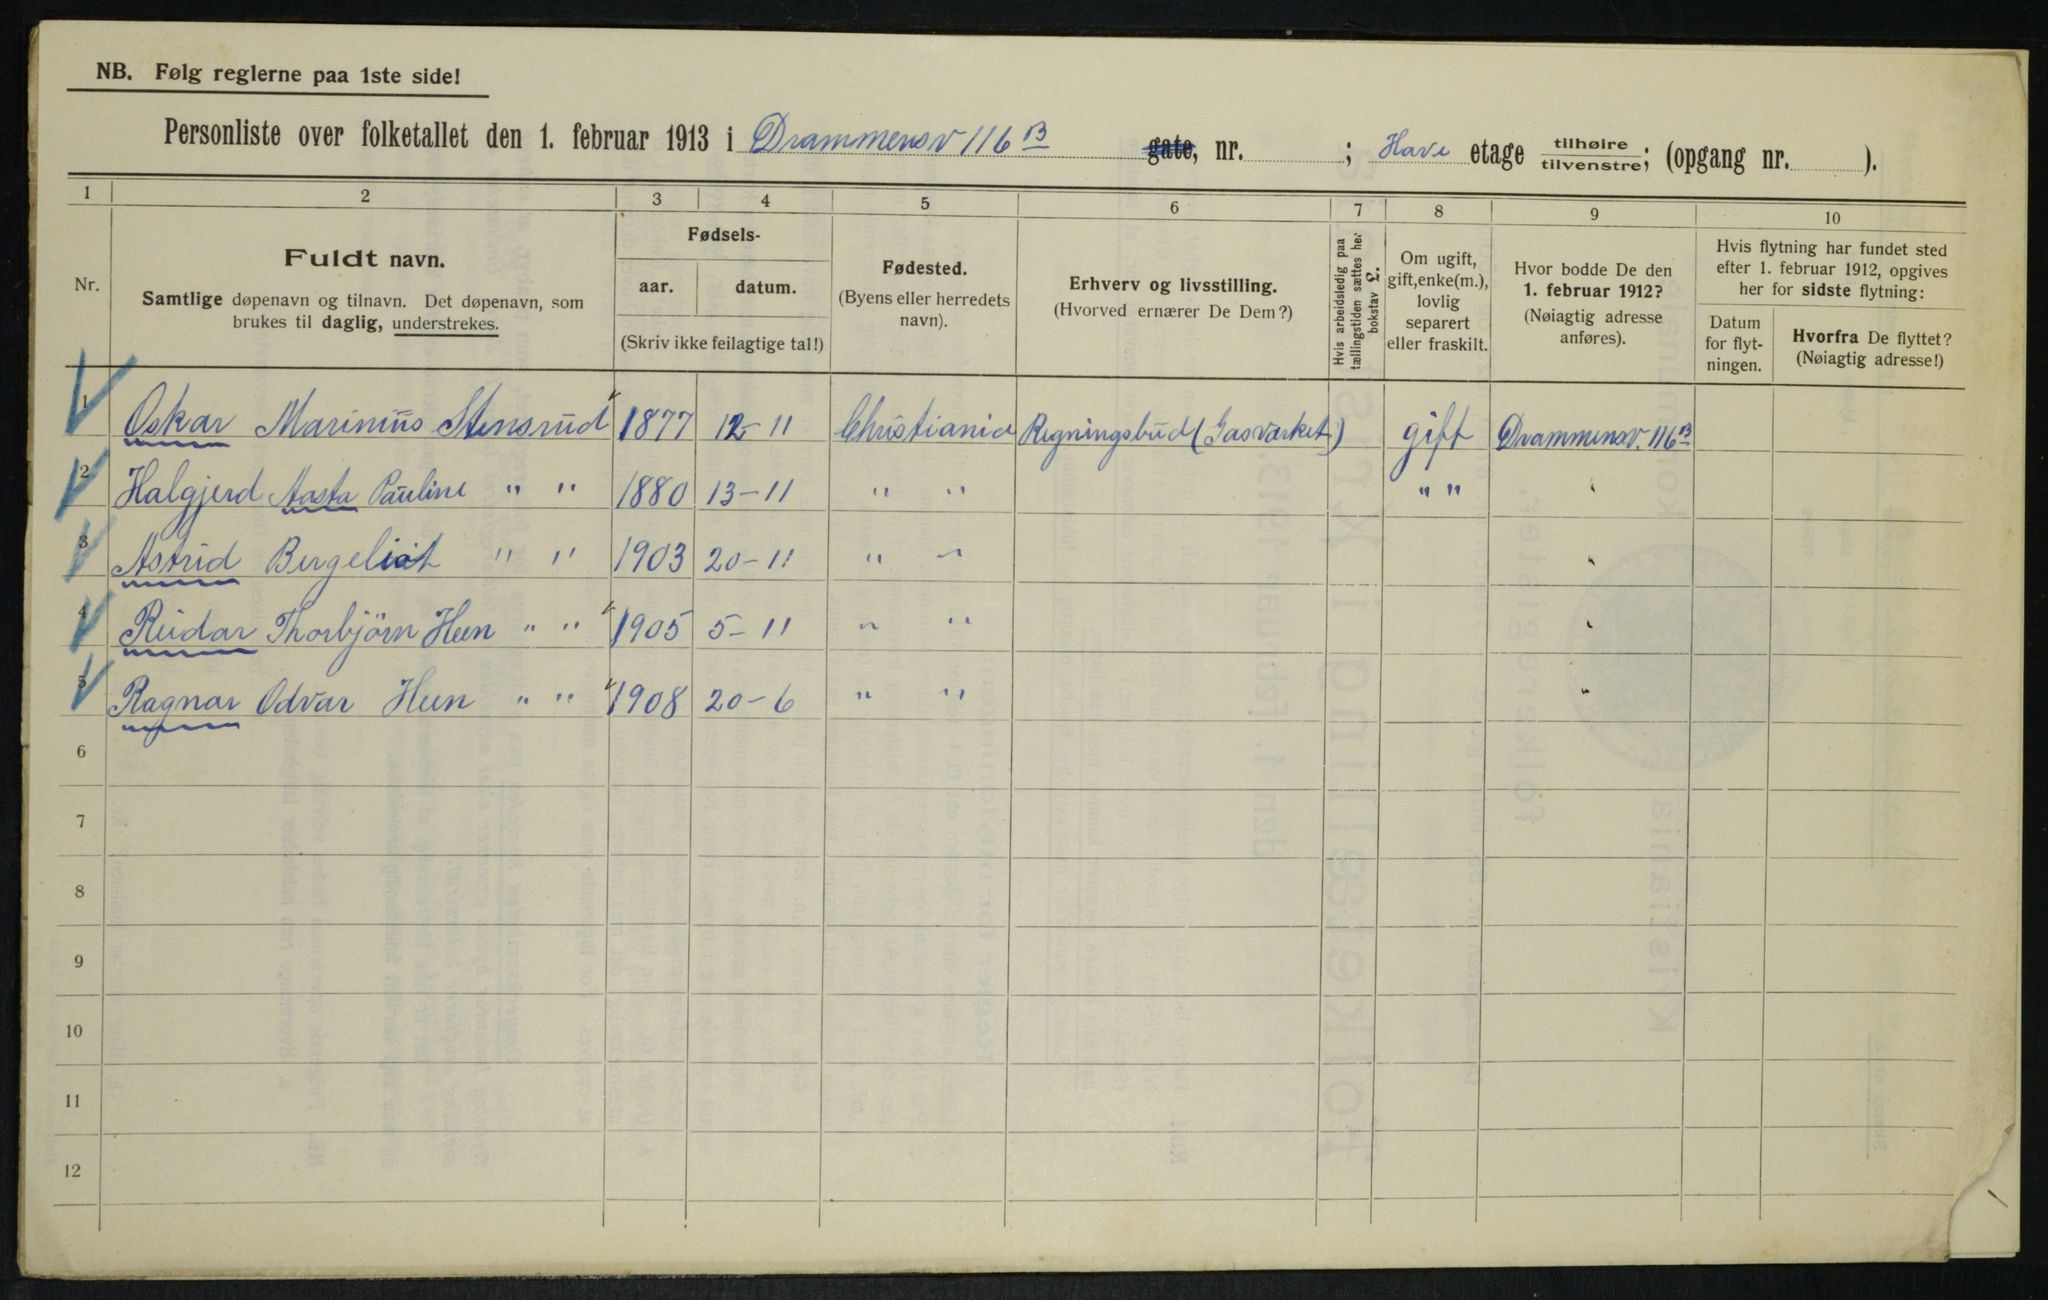 NB. Følg reglerne paa 1ste side!
Personliste over folketallet den 1. februar 1913 i Drammensv 116 B gate, nr. ; Have etage tilhøire tilvenstre; (opgang nr. ).
1 2 3 4 5 6 7 8 9 10
Nr.
Fuldt navn.
Samtlige døpenavn og tilnavn. Det døpenavn, som
brukes til daglig, understrekes.
Fødsels-
aar. datum.
(Skriv ikke feilagtige tal!)
Fødested.
(Byens eller herredets
navn).
Erhverv og livsstilling.
(Hvorved ernærer De Dem?)
Hvis arbeidsledig paa
tællingstiden sættes her
bokstav L.
Om ugift,
gift, enke(m.),
lovlig
separert
eller fraskilt.
Hvor bodde De den
1. februar 1912?
(Nøiagtig adresse
anføres).
Hvis flytning har fundet sted
efter 1. februar 1912, opgives
her for sidste flytning:
Datum
for flyt-
ningen.
Hvorfra De flyttet?
(Nøiagtig adresse!)
1 Oskar Marinius Stensrud 1877 12-11 Christiania Regningsbud (Gasværket) gift Drammensv. 116 B
2 Halgjerd Aasta Pauline " " 1880 13-11 " " " " "
3 Astrid Bergeliot " " 1903 20-11 " " "
4 Reidar Thorbjörn Heen " " 1905 5-11 " " "
5 Ragnar Odvar Heen " " 1908 20-6 " " "
6
7
8
9
10
11
12